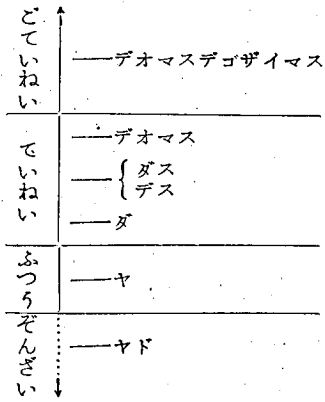 ごていねい
デオマスデゴザイマス
ていねい
デオマス
ダス
デス
ダ
ふつう
ヤ
ぞんざい
ヤド